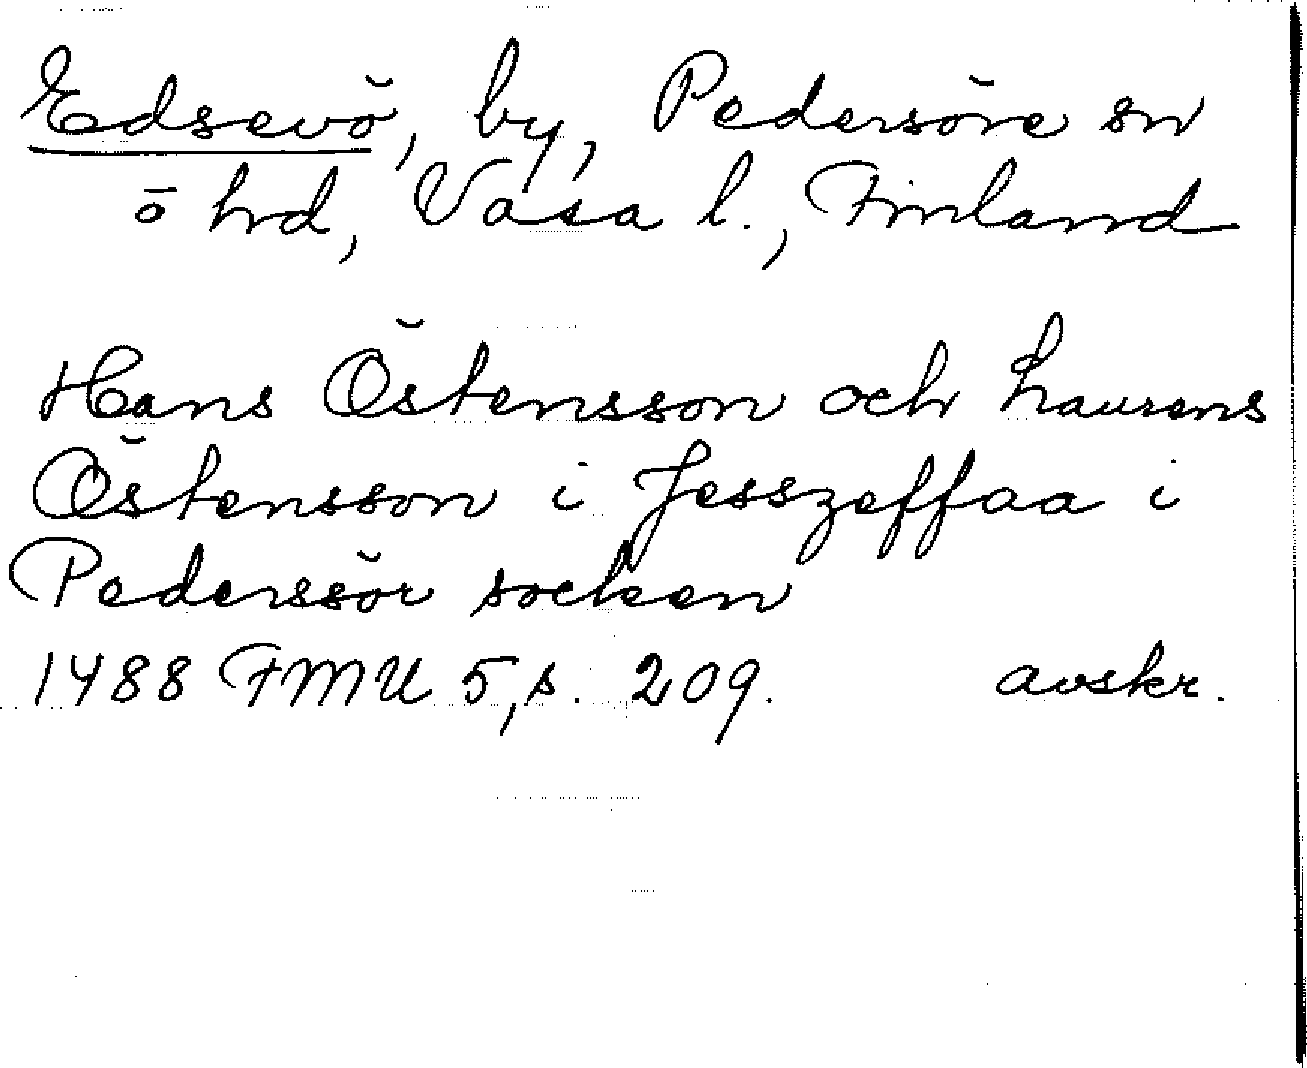 Edsevö, by, Pedersöre sn
ö hrd, Vasa l., Finland
Hans Östensson och Laurens
Östensson i Jesszeffaa i
Pederssör socken
1488 FMU 5, s. 209. avskr.